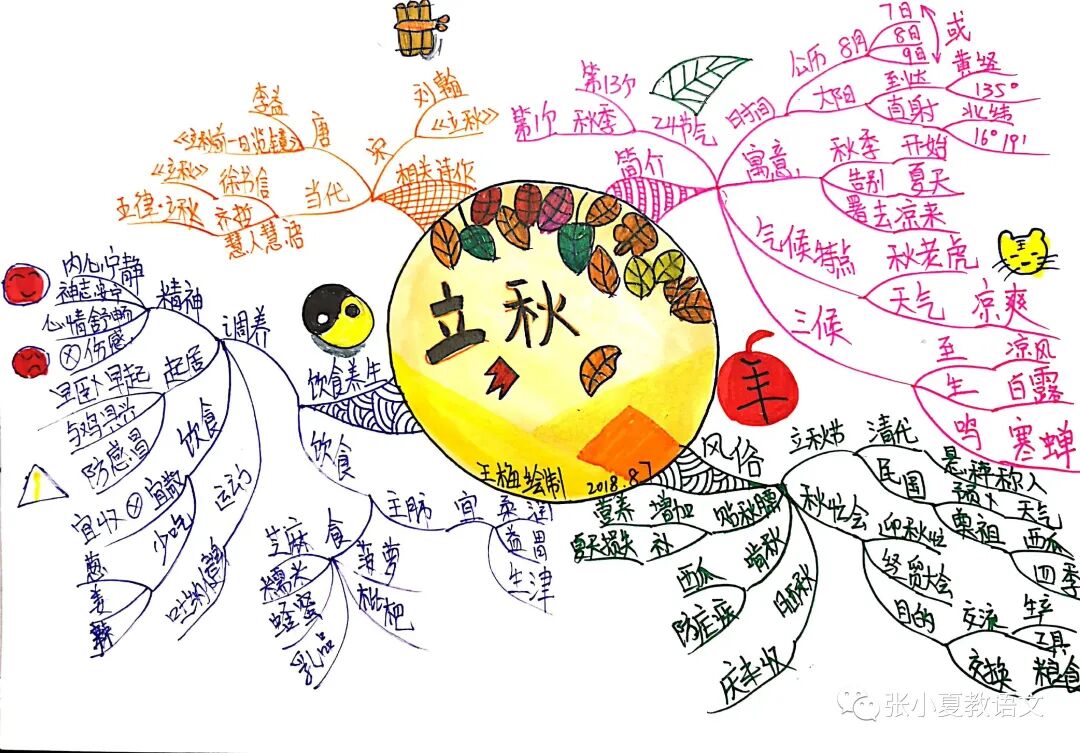 立秋
王梅绘制 2018.8.7
羊
简介
24节气
第13次
第1次 秋季
时间
公历 8月
7日
8日
9日
或
太阳
到达
黄经
135°
直射
北纬
16°19′
寓意
秋季 开始
告别 夏天
暑去凉来
气候特点
秋老虎
天气 凉爽
三候
至 凉风
生 白露
鸣 寒蝉
风俗
立秋节
清代
悬秤称人
民国
预人 天气
奠祖
西瓜
四季
秋忙会
迎秋忙
经贸大会
目的
交流 生产
工具
交换 粮食
贴秋膘
增加 营养
补 夏天损失
啃秋
西瓜
防疟疾
晒秋
庆丰收
饮食养生
饮食
主肪 宜 柔润
益胃
生津
食
芝麻
糯米
蜂蜜
乳品
菠萝
枇杷
调养
精神
内心宁静
神志安宁
心情舒畅
伤感
起居
早卧早起
与鸡俱兴
防感冒
饮食
宜收 宜散
少吃
葱
姜
运动
吐纳
相关诗作
宋
刘翰
《立秋》
唐
李益
《立秋前一日览镜》
当代
徐书信
《立秋》
齐哲
五律·立秋
慧人慧语
张小夏教语文